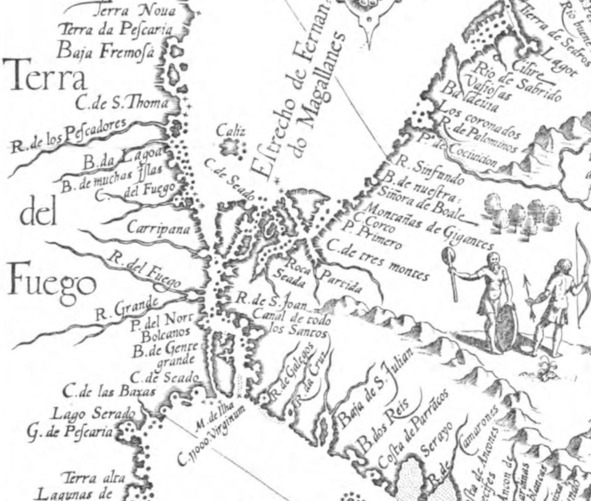 Terra Nova
Terra da Pescaria
Baja Fremosa
Terra
del
Fuego
C. de S. Thoma
R. de los Pescadores
B. da Lagoa
B. de muchas Islas
C. del Fuego
Carripana
R. del Fuego
R. Grande
P. del Nort
Bolcanos
B. de Gente
grande
C. de Seado
C. de las Baxas
Lago Serado
G. de Pescaria
Terra alta
Lagunas de
Caliz
C. de Seado
Estrecho de Fernan
do Magallanes
Terra de Sedros
Rio buene
Lagor
Rio de Sabrido
Vasiosas
Baldeuia
Los coronados
R. de Palominos
P. de Cocincion
R. Sinfundo
B. de nuestra:
Sinora de Boale
Montañas de Gigantes
C. Corco
P. Primero
C. de tres montes
Roca Partida
Seada
R. de S. Joan
Canal de todo
los Santos
R. de Galegos
R. da Cruz
Baja de S. Julian
B. dos Reis
Costa de Parracos
Serayo
R. de Camarones
M. de Ilha
C. 11000 Virginum